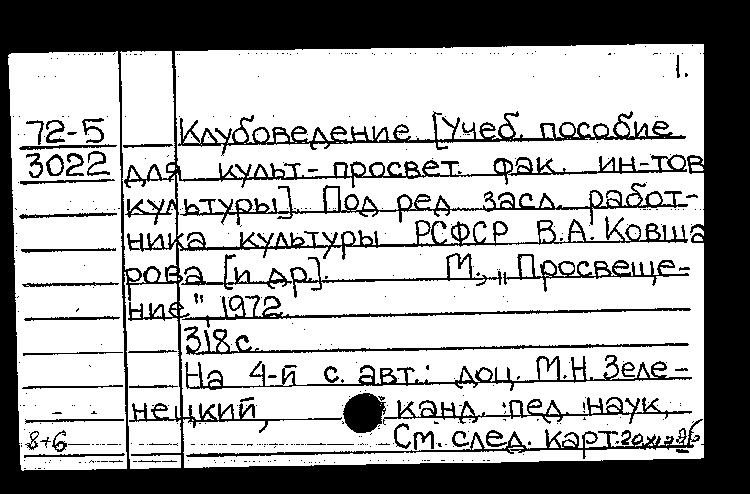 1.
72-5 Клубоведение. [Учеб. пособие
3022 для культ.-просвет. фак. ин-тов
культуры]. Под ред. засл. работ-
ника культуры РСФСР В.А. Ковша
рова [и др.]. М., „Просвеще-
ние", 1972.
318 с.
На 4-й с. авт.: доц. М.Н. Зеле-
нецкий, канд. пед. наук,
8+6 См. след. карт.